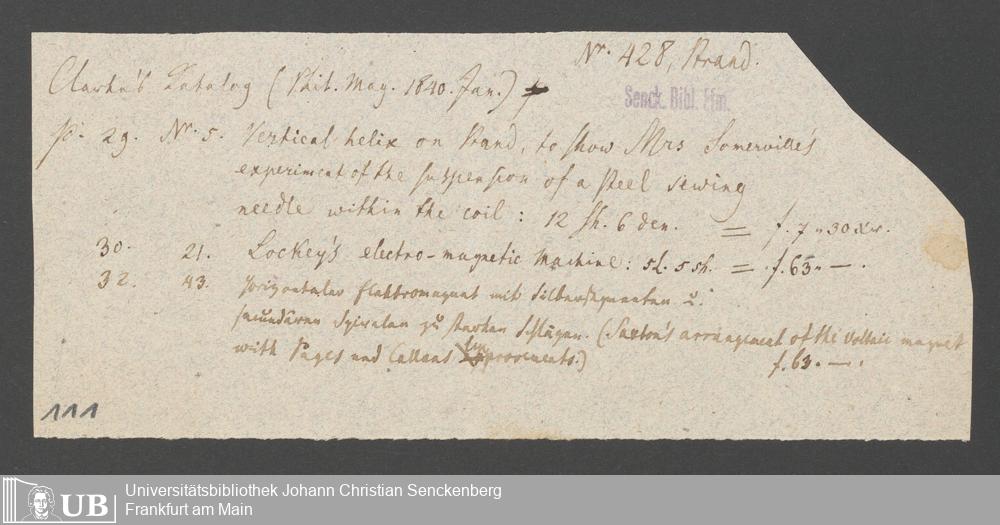 Nr. 428, Strand.
Clarke's Katalog (Phil. Mag. 1840. Jan.)
Senck. Bibl. Ffm.
p. 29. Nr. 5. Vertical helix on Stand, to show Mrs Somerville's
experiment of the suspension of a steel sewing
needle within the coil: 12 sh. 6 den. = f. 7 " 30 Xr.
30. 21. Lockey's electro-magnetic Machine: 5 L. 5 sh. = f. 63. — .
32. 43. Horizontaler Elektromagnet mit Silbersegmenten u.
secundären Spiralen zu starken Schlägen. (Saxton's arrangement of the Voltaic magnet
with Pages und Callans Improvements.) f. 63. — .
111
UB
Universitätsbibliothek Johann Christian Senckenberg
Frankfurt am Main